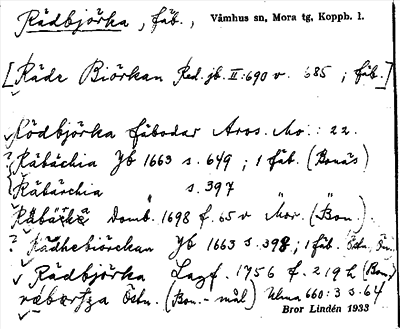 Rädbjörka, fäb., Våmhus sn, Mora tg, Koppb. l.
[Räde Biörkan Red. jb. II:690 v. 685; fäb.]
Rödbjörka fäbodar Aros. Mo.: 22.
? Räbächia Jb 1663 s. 649; 1 fäb. (Bonäs)
Räbärchia s. 397
Domb. 1698 f. 65 v Mor. (Bon.)
? Rädhebiörckan Jb 1663 s. 398; 1 fäb. Östn.
Rädbjörka Lagf. 1756 f. 219 (Bon.)
Östn. (Bon.-mål) Ulma 660:3 s. 64
Bror Lindén 1933